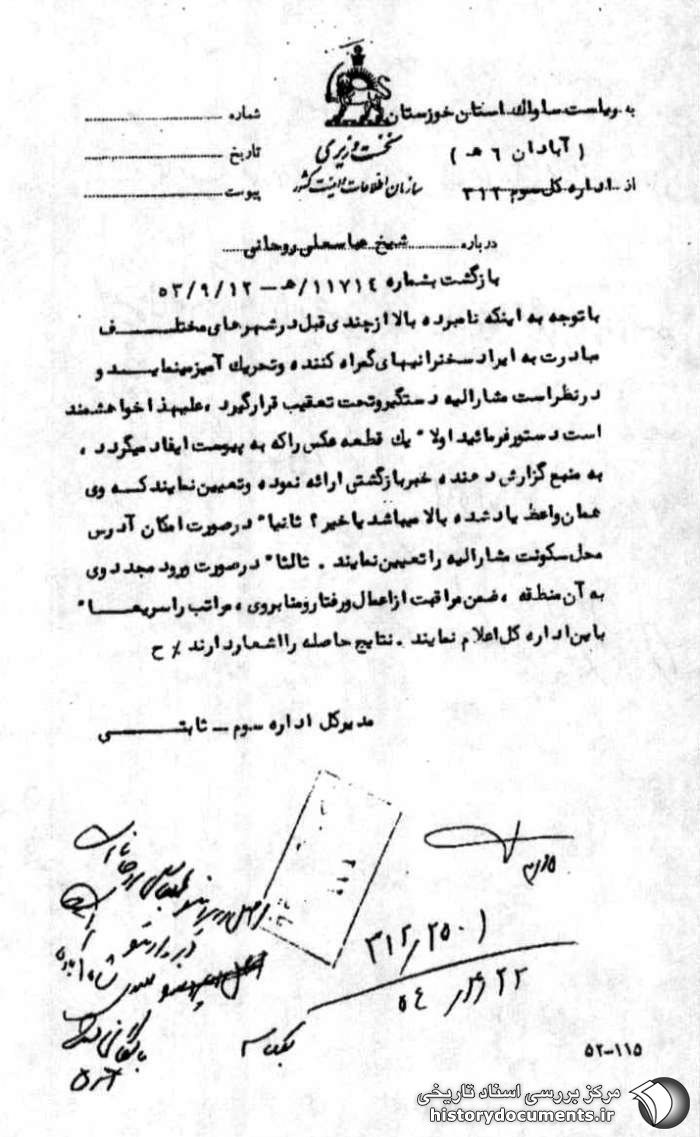 به ریاست ساواك استان خوزستان
( آبادان ٦ هـ )
از اداره کل سوم ٣١٢
نخست وزیری
سازمان اطلاعات و امنیت کشور
شماره
تاریخ
پیوست
درباره شیخ عباسعلی روحانی
بازگشت بشماره ١١٧١٤/هـ - ٥٣/٩/١٢
با توجه به اینکه نامبرده بالا از چندی قبل در شهرهای مختلف
مبادرت به ایراد سخنرانیهای گمراه کننده و تحریك آمیز مینماید و
در نظر است مشارالیه دستگیر و تحت تعقیب قرار گیرد ، علیهذا خواهشمند
است دستور فرمائید اولا " یك قطعه عکس را که به پیوست ایفاد میگردد ،
به منبع گزارش دهنده خبر بازگشتی ارائه نموده و تعیین نمایند که وی
همان واعظ یاد شده بالا میباشد یا خیر ؟ ثانیا " در صورت امکان آدرس
محل سکونت مشارالیه را تعیین نمایند . ثالثا " در صورت ورود مجدد وی
به آن منطقه ، ضمن مراقبت از اعمال و رفتار و منابر وی ، مراتب را سریعا "
باین اداره کل اعلام نمایند . نتایج حاصله را اشعار دارند ٪ ح
مدیر کل اداره سوم - ثابتی
٣١٢/٢٥٠١
٥٢-١١٥
مرکز بررسی اسناد تاریخی
historydocuments.ir